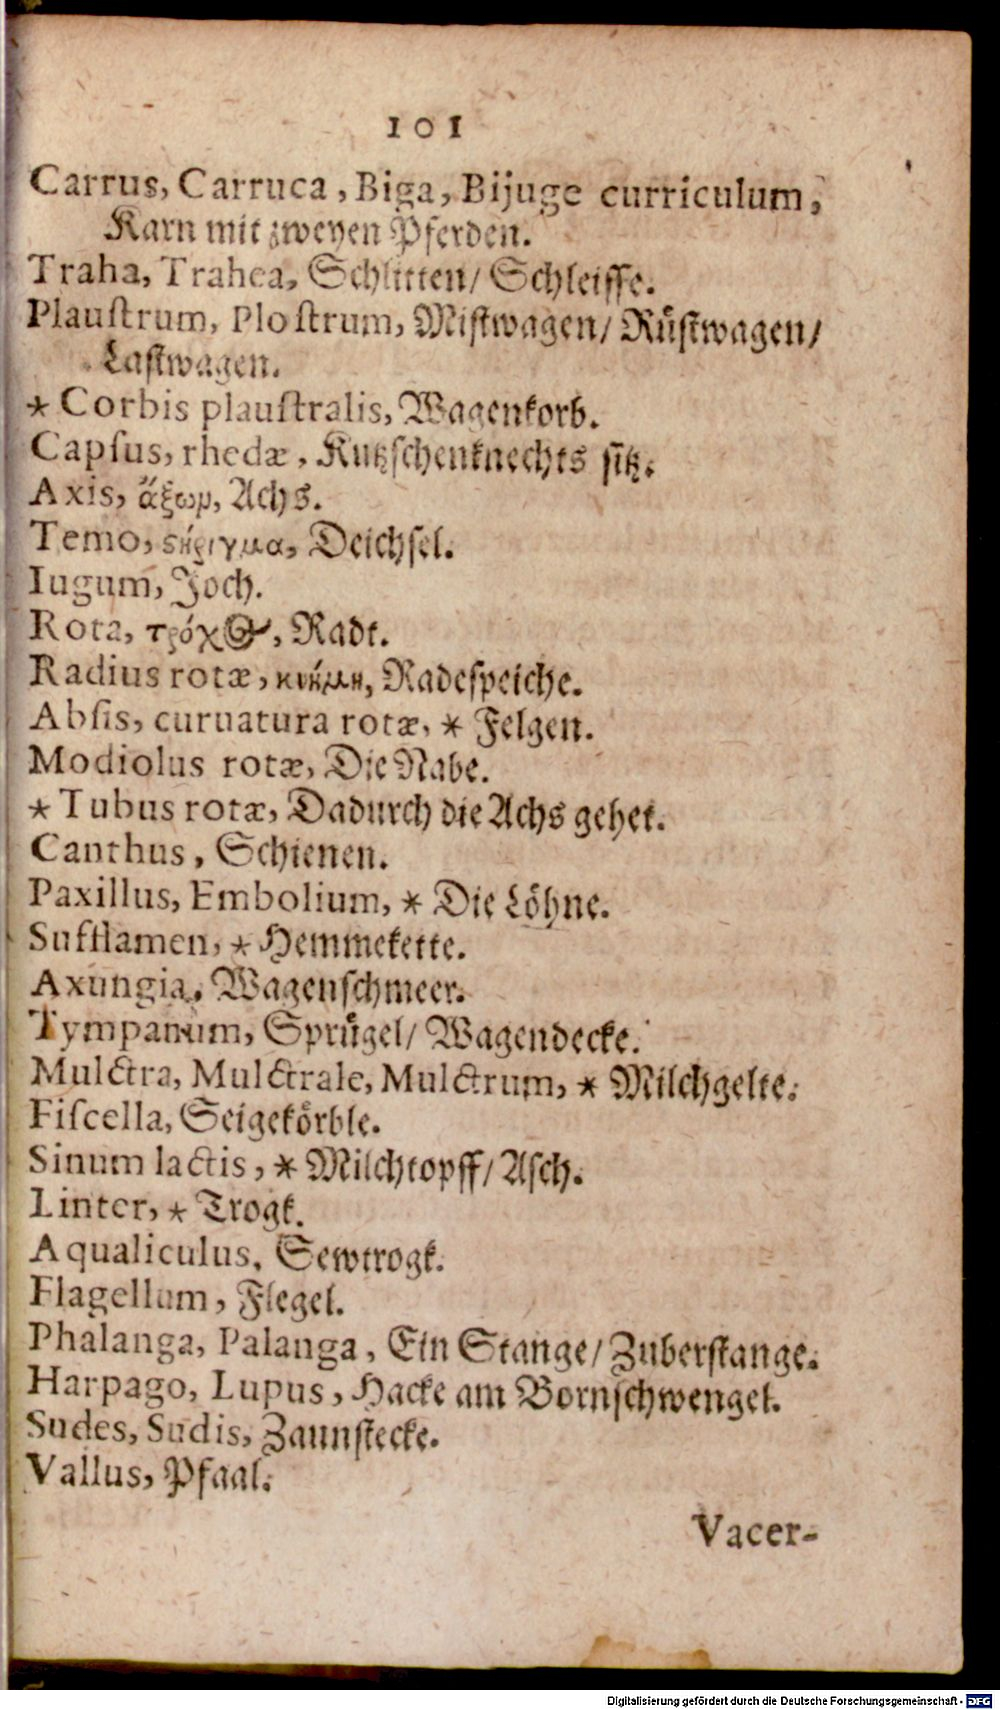 101
Carrus, Carruca, Biga, Bijuge curriculum,
Karn mit zweyen Pferden.
Traha, Trahea, Schlitten/ Schleiffe.
Plauſtrum, Ploſtrum, Miſtwagen/ Ruͤſtwagen/
Laſtwagen.
* Corbis plauſtralis, Wagenkorb.
Capſus, rhedæ, Kutzſchenknechts ſitz.
Axis, ἄξωμ, Achs.
Temo, ϛήριγμα, Deichſel.
Iugum, Joch.
Rota, τρόχος, Radt.
Radius rotæ, κνήμη, Radeſpeiche.
Abſis, curuatura rotæ, * Felgen.
Modiolus rotæ, Die Nabe.
* Tubus rotæ, Dadurch die Achs gehet.
Canthus, Schienen.
Paxillus, Embolium, * Die Loͤhne.
Sufflamen, * Hemmekette.
Axungia, Wagenſchmeer.
Tympanum, Spruͤgel/ Wagendecke.
Mulctra, Mulctrale, Mulctrum, * Milchgelte.
Fiſcella, Seigekoͤrble.
Sinum lactis, * Milchtopff/ Aſch.
Linter, * Trogk.
Aqualiculus, Sewtrogk.
Flagellum, Flegel.
Phalanga, Palanga, Ein Stange/ Zuberſtange.
Harpago, Lupus, Hacke am Bornſchwengel.
Sudes, Sudis, Zaunſtecke.
Vallus, Pfaal.
Vacer-
Digitalisierung gefördert durch die Deutsche Forschungsgemeinschaft - DFG